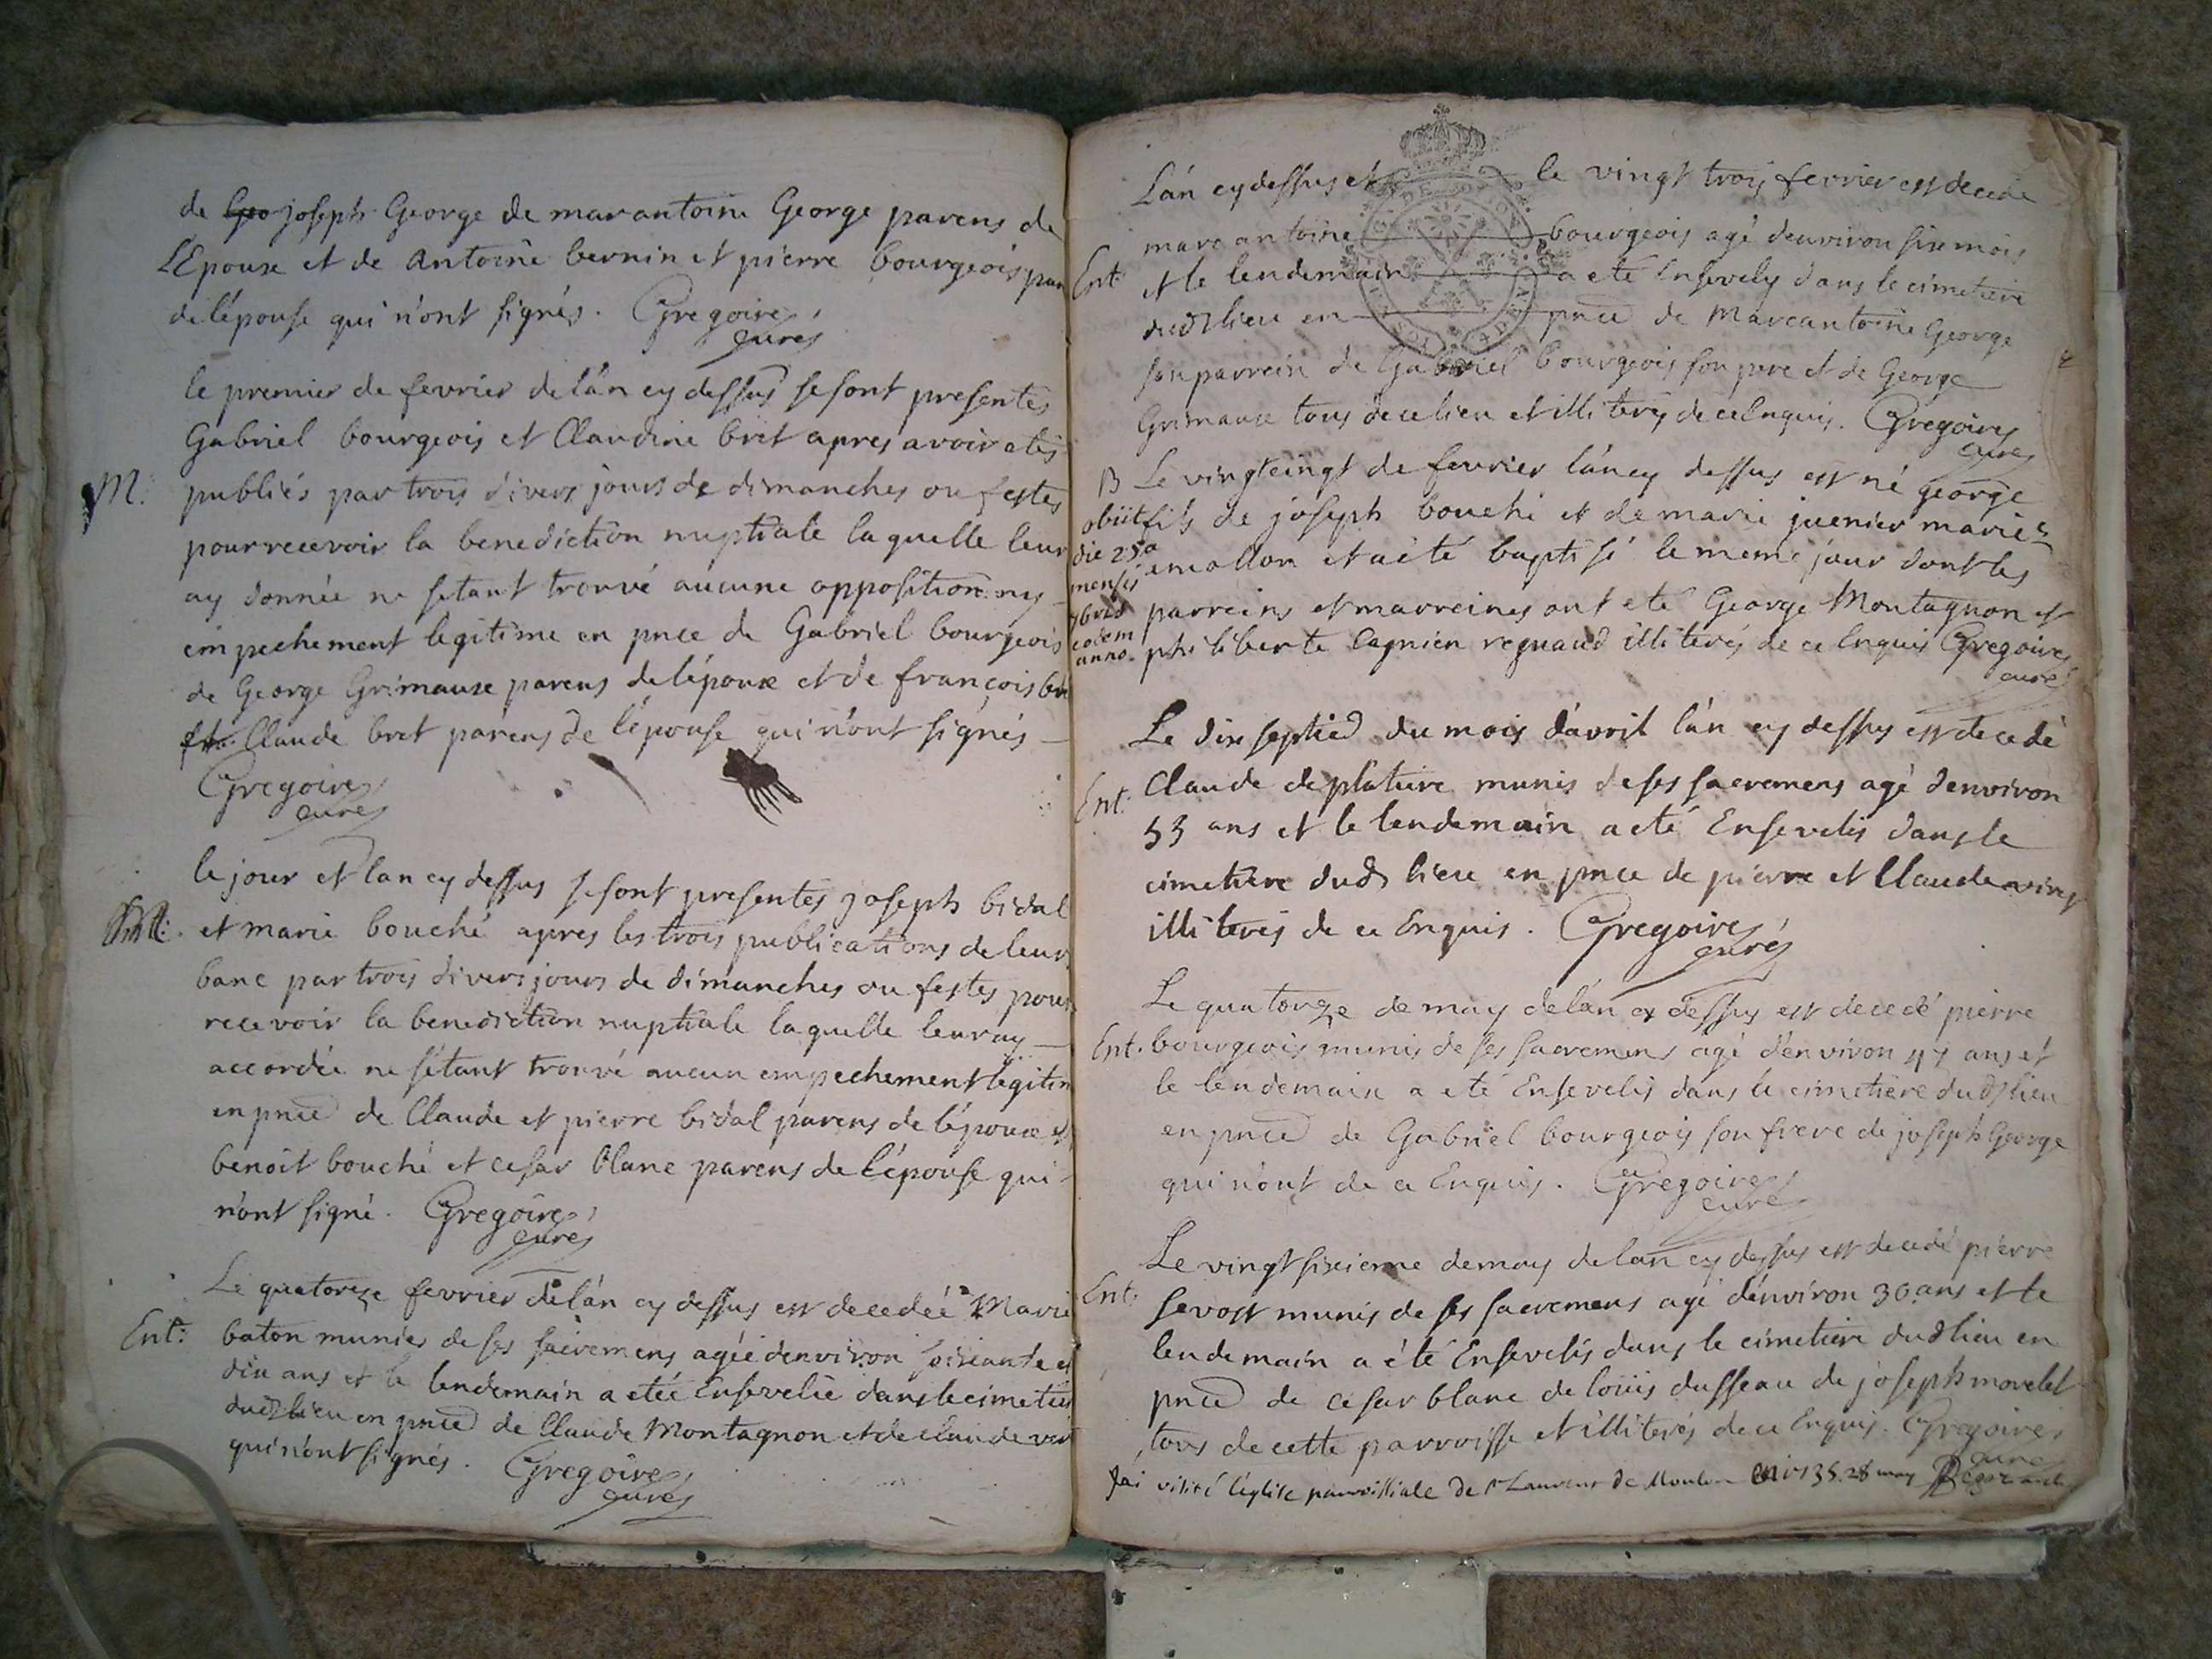 de Geo joseph George de marantoine George parens de
L'Epoux et de Antoine bernin et pierre bourgeois par
de l'épouse qui n'ont signés. Gregoire
curé
le premier de fevrier de l'án cy dessus se sont presentés
Gabriel bourgeois et Claudine bret apres avoir etés
M. publiés par trois divers jours de dimanches ou festes
pour recevoir la benediction nuptiale laquelle leur
ay donnée ne setant trouvé aucune opposition ny
empechement legitime en pnce de Gabriel bourgeois
de George Grimause parens de l'époux et de françois bre
Claude bret parens de l'épouse qui n'ont signés
Gregoire
curé
le jour et lan cy dessus se sont presentés joseph bidal
et marie bouché apres les trois publications de leur
banc par trois divers jours de dimanches ou festes pour
recevoir la benediction nuptiale laquelle leur ay
accordée ne s'étant trouvé aucun empechement legitim
en pnce de Claude et pierre bidal parens de l'époux et
benoit bouché et cesar blanc parens de l'épouse qui
n'ont signé. Gregoire
curé
Le quatorze fevrier de l'án cy dessus est decedée Marie
Ent: baton munies de ses sacremens agée denviron soixante et
dix ans et le lendemain a etée Ensevelie dans le cimetiè
dud lieu en pnce de Claude Montagnon et de claude
qui n'ont signés. Gregoire
curé
L'án cy dessus et le vingt trois fevrier est decede
marc antoine bourgeois agé denviron six mois
Ent: et le lendemain a eté Ensevely dans le cimetiere
dud lieu en pnce de Marcantoine George
son parrein de Gabriel bourgeois son pere et de George
Grimause tous de ce lieu et illiterés de ce Enquis. Gregoire
curé
B Le vingt cinqt de fevrier l'án cy dessus est né george
obiit fils de joseph bouché et de marie juenier mariés
die 25a emollon et a été baptisé le meme jour dont les
mensis
parreins et marreines ont eté George Montagnon et
eodem
anno. philiberte Cagnien regnaud illiterés de ce Enquis Gregoire
curé
Le dix septied du mois d'avril l'án cy dessus est decedé
Ent: Claude deplature munis de ses sacremens agé denviron
53 ans et le lendemain a eté Ensevelis dans le
cimetiere dud lieu en pnce de pierre et Claude
illiterés de ce Enquis. Gregoire
curé
Le quatorze de may de l'án cy dessus est decedé pierre
Ent. bourgeois munis de ses sacremens agé d'environ ans et
le lendemain a eté Ensevelis dans le cimetiere dud lieu
en pnce de Gabriel bourgeois son frere de joseph George
qui n'ont de ce Enquis. Gregoire
curé
Le vingt sixieme de may de lan cy dessus est decedé pierre
Ent: sevost munis de ses sacremens agé d'environ 30 ans et le
lendemain a été Ensevelis dans le cimetiere dud lieu en
pnce de cesar blanc de loüis dusseau de joseph morelet
tous de cette parroisse et illiterés de ce Enquis. Gregoire
curé
J'ai visité l'église parroissiale de st Laurens de Moulon 1735. 28 may